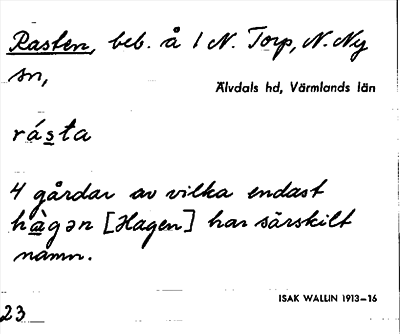 Rasten, beb. å 1 N. Torp, N. Ny
sn,
Älvdals hd, Värmlands län
rásta
4 gårdar av vilka endast
hàgən [Hagen] har särskilt
namn.
ISAK WALLIN 1913–16
23